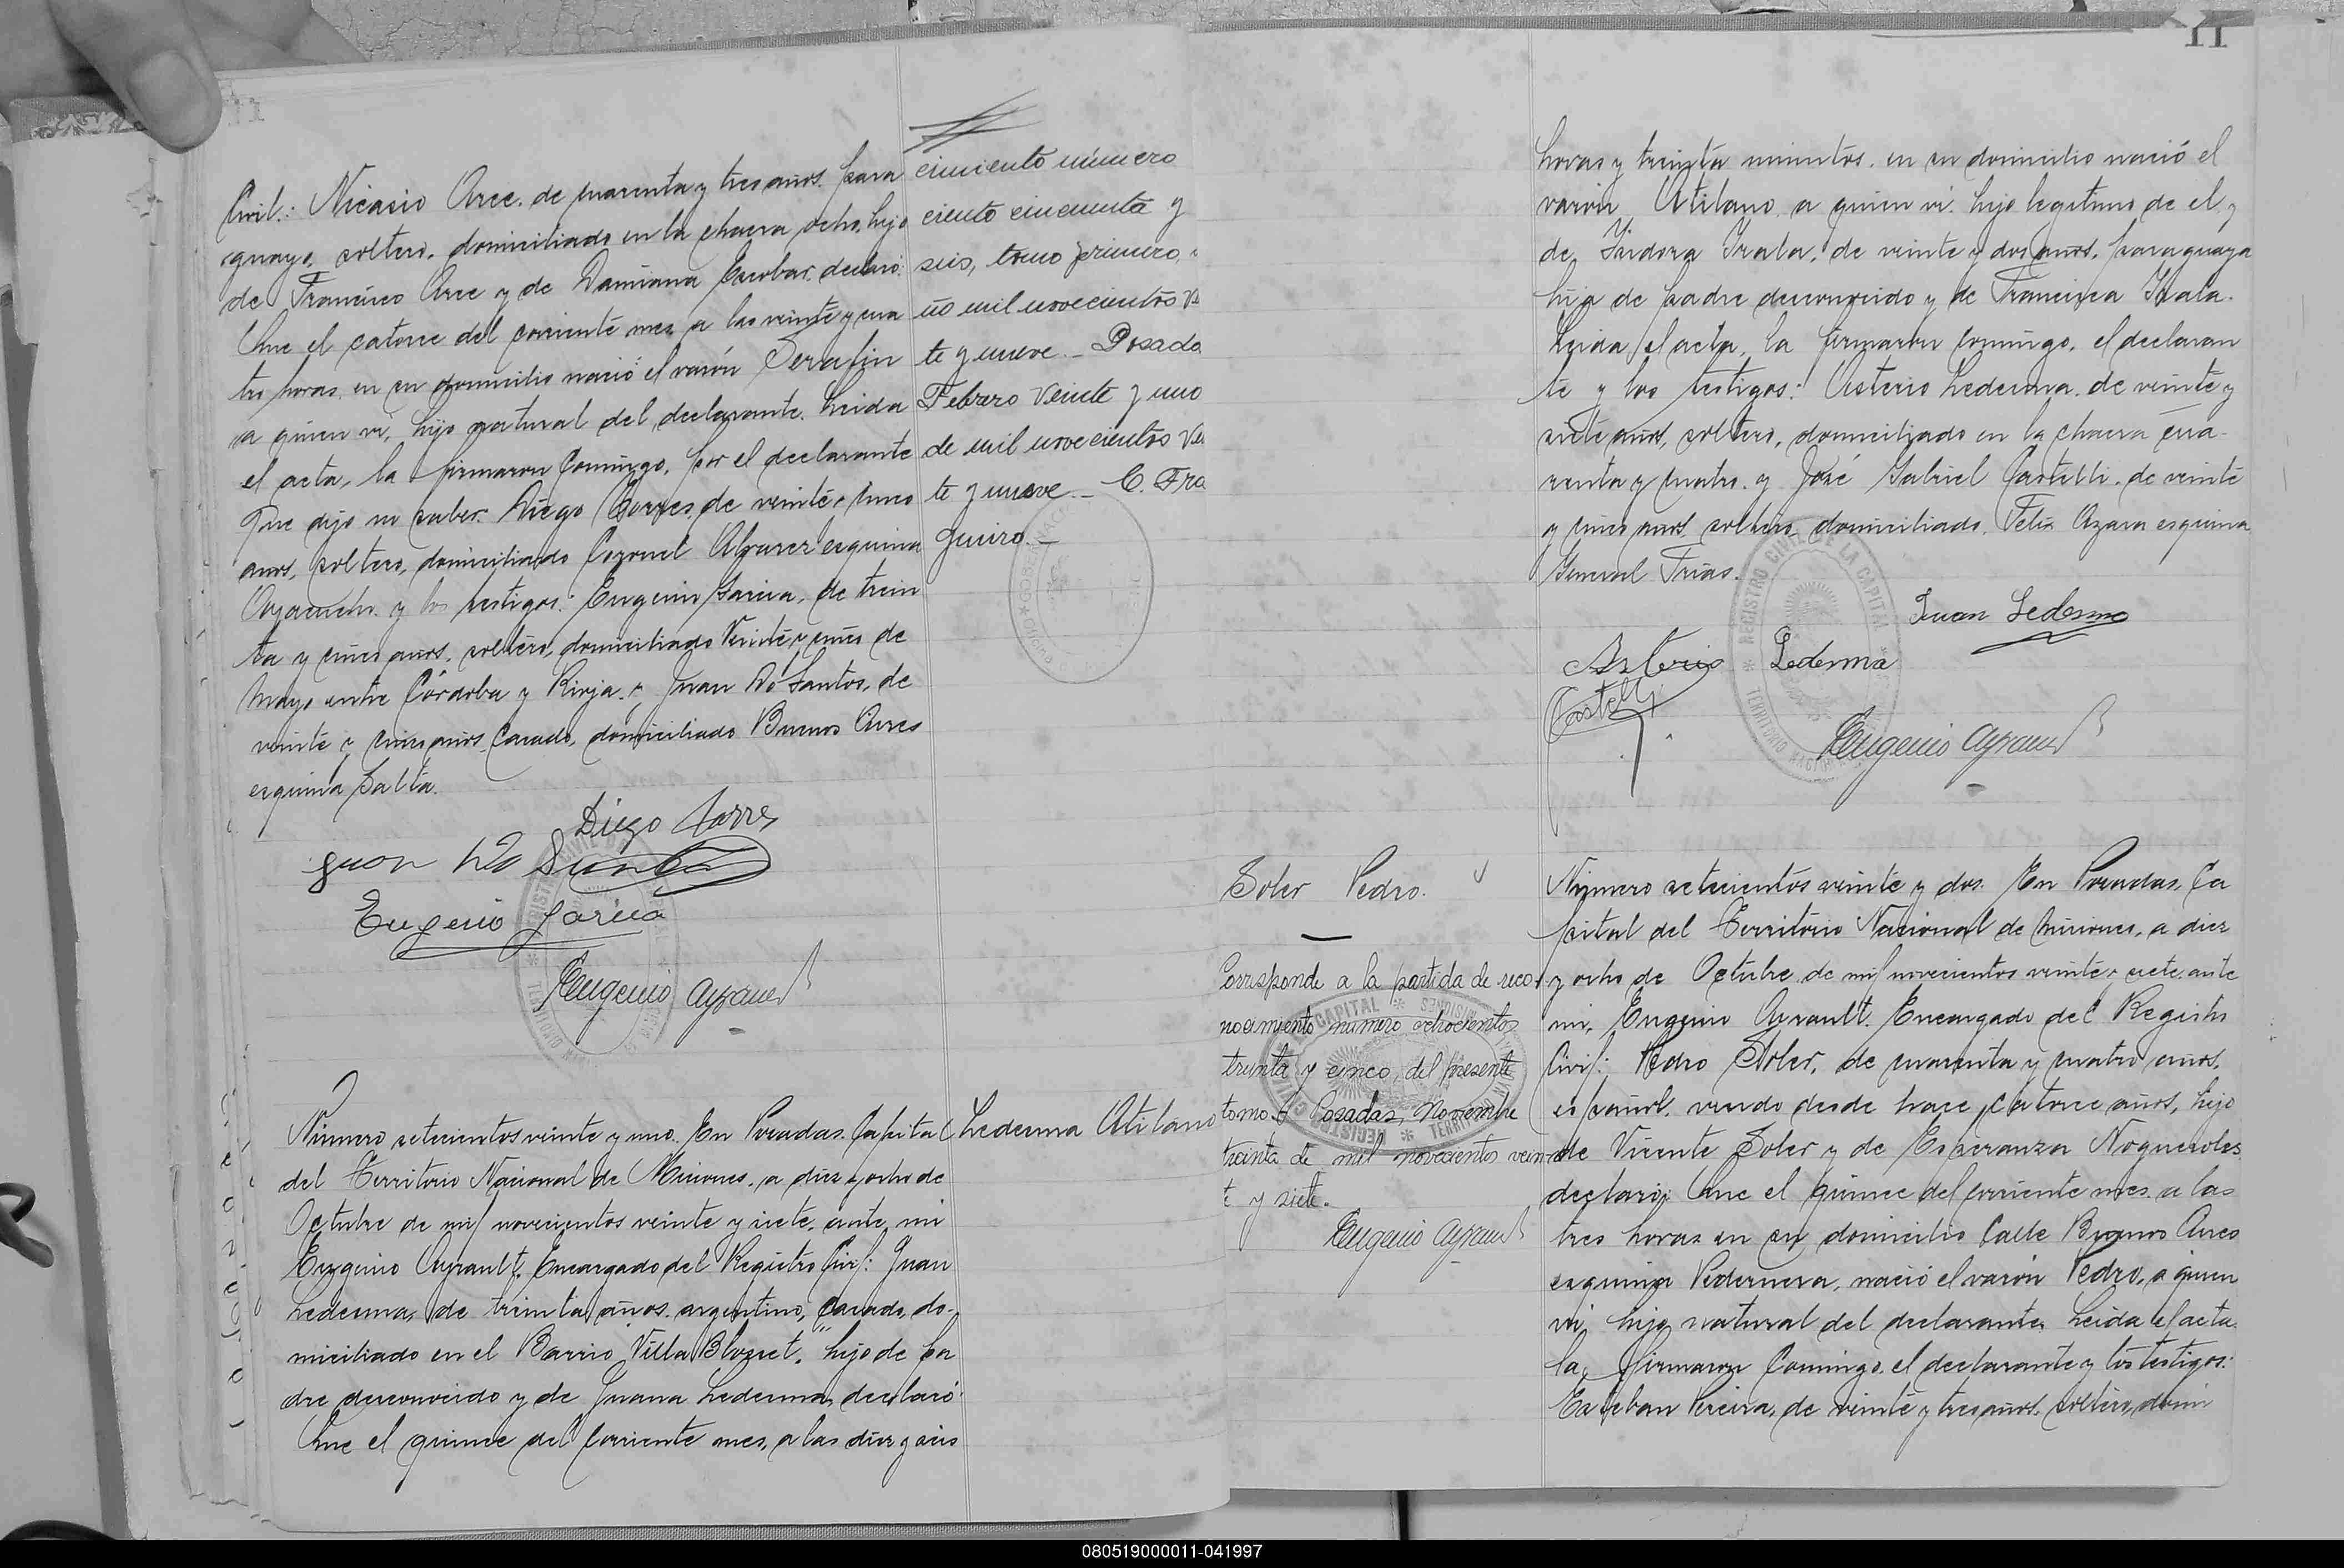 Civil: Nicasio Arce, de cuarenta y tres años, para
guayo, soltero, domiciliado en la chacra ocho, hijo
de Francisco Arce y de Damiana Escobar, declaró:
Que el catorce del corriente mes a las veinte y cua
tro horas, en su domicilio nació el varón Serafin
a quien vi, hijo natural del declarante. Leida
el acta, la firmaron conmigo, por el declarante
que dijo no saber, Diego Torres, de veinte y cinco
anos, soltero, domiciliado Coronel Alvarez esquina
Ayacucho y los testigos: Eugenio Garcia, de trein
ta y cinco años, soltero, domiciliado Veinte y cinco de
Mayo entre Córdoba y Rioja, y Juan Do Santos, de
veinte y cinco años, casado, domiciliado Buenos Aires
esquina Salta.
Diego Torres
Juan Do Santos
Eugenio Garcia
Eugenio Ayrault
cimiento número
ciento cincuenta y
seis, tomo primero, a
ño mil novecientos ve
te y nueve._ Posada
Febrero veinte y uno
de mil novecientos ve
te y nueve._ C. Fra
queiro._
Número setecientos veinte y uno. En Posadas, Capital
del Territorio Nacional de Misiones, a diez y ocho de
Octubre de mil novecientos veinte y siete, ante mi
Eugenio Ayrault, Encargado del Registro Civil: Juan
Ledesma, de treinta años, argentino, casado, do-
miciliado en el Barrio "Villa Blosset", hijo de pa
dre desconocido y de Juana Ledesma, declaró:
Que el quince del corriente mes, a las diez y seis
Ledesma Atilano
11
horas y treinta minutos, en su domicilio nació el
varón Atilano, a quien vi, hijo legitimo de el y
de Isidora Irala, de veinte y dos años, paraguaya
hija de padre desconocido y de Francisca Irala.
Leida el acta, la firmaron conmigo, el declaran
te y los testigos: Asterio Ledesma, de veinte y
siete años, soltero, domiciliado en la chacra cua-
renta y cuatro, y José Gabriel Castelli, de veinte
y cinco anos, soltero, domiciliado Felix Azara esquina
General Frias.
Juan Ledesma
Asterio Ledesma
Castelli
Eugenio Ayrault
REGISTRO CIVIL DE LA CAPITAL
Soler Pedro.
Corresponde a la partida de reco-
nocimiento número ochocientos
treinta y cinco, del presente
tomo. Posadas, Noviembre
treinta de mil novecientos vein-
te y siete.
Eugenio Ayrault
Número setecientos veinte y dos. En Posadas, Ca
pital del Territorio Nacional de Misiones, a diez
y ocho de Octubre de mil novecientos veinte y siete, ante
mi, Eugenio Ayrault, Encargado del Registro
Civil: Pedro Soler, de cuarenta y cuatro años,
español, viudo desde hace catorce años, hijo
de Vicente Soler y de Esperanza Nogueroles
declaró: Que el quince del corriente mes a las
tres horas en su domicilio Calle Buenos Aires
esquina Pedernera, nació el varón Pedro, a quien
vi, hijo natural del declarante. Leida el acta
la firmaron conmigo, el declarante y los testigos:
Esteban Pereira, de veinte y tres años, soltero, domi
080519000011-041997